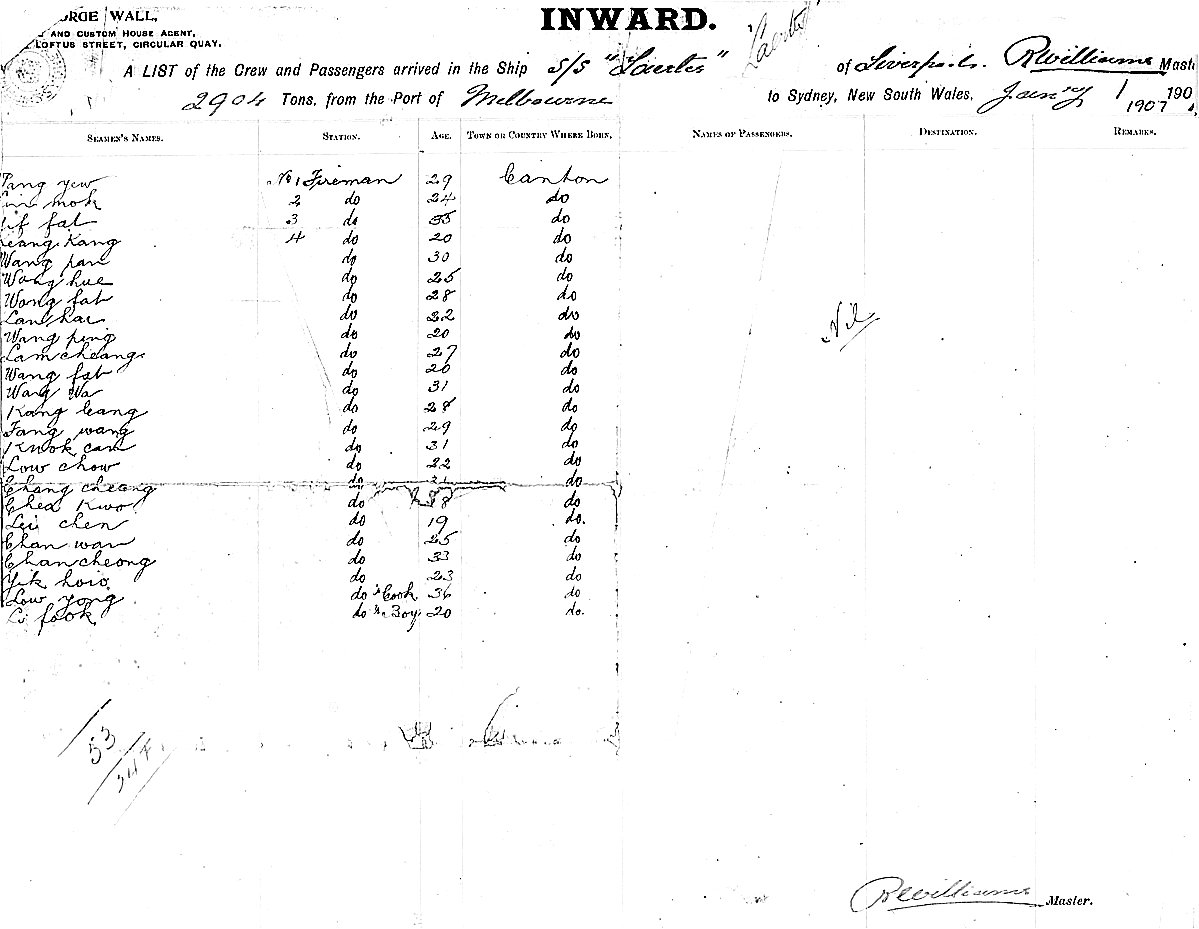 INWARD.
WALL,
AND CUSTOM HOUSE AGENT,
LOFTUS STREET, CIRCULAR QUAY.
A LIST of the Crew and Passengers arrived in the Ship S/S "Laertes" of Liverpool. RWilliams Master
2904 Tons, from the Port of Melbourne to Sydney, New South Wales, Jany 1 190
1907
SEAMEN'S NAMES. STATION. AGE. TOWN OR COUNTRY WHERE BORN. NAMES OF PASSENGERS. DESTINATION. REMARKS.
yew No 1 Fireman 29 Canton
mok 2 do 24 do
fat 3 do do
Kang 4 do 20 do
Wang pan do 30 do
Wong hue do 25 do
Wong fat do 28 do
do do
Wang ping do 20 do
Lam cheang do 27 do
Wang fat do 20 do
Wang Wa do 31 do
Kang leang do 28 do
Fang wang do 29 do
Kwok can do 31 do
Low chow do 22 do
Chang cheong do do
Chea Kwo do do
Lei chen do 19 do.
Chan wan do 25 do
Chan cheong do 33 do
Yik do 23 do
Low yong do "Cook 36 do
Li fook do "Boy 20 do.
Nil
53
RWilliams Master.